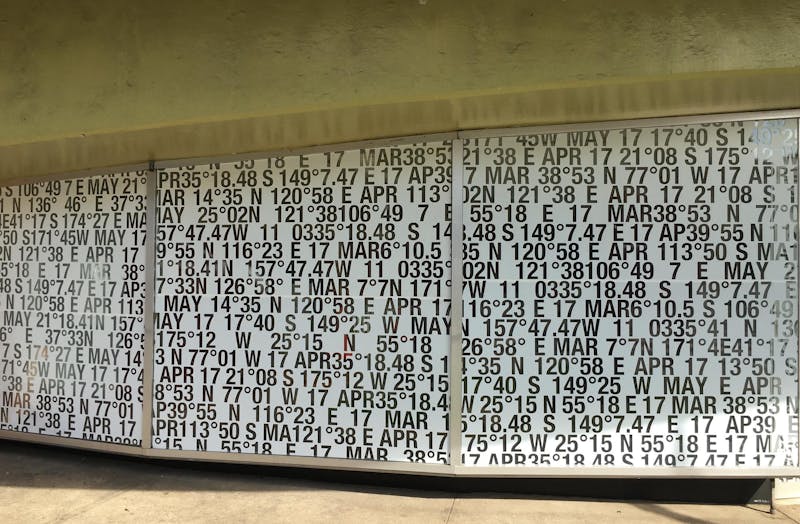 S 106°49 7 E MAY 21°
N 136° 46' E 37°33
4E41°17 S 174°27 E MAY
°50 S171°45W MAY 17
2N 121°38 E APR 17
5°18 E 17 MAR 38°
.48 S 149°7.47 E 17 AP3
N 120°58 E APR 113°
MAY 21°18.41N 157°
6° E 37°33N 126°5
7 S 174°27 E MAY 14°
°45W MAY 17 17°40 S
E APR 17 21°08 S
MAR 38°53 N 77°01
N 121°38 E APR 17
N 55°18 E 17 MAR38°53
APR35°18.48 S 149°7.47 E 17 AP39
MAR 14°35 N 120°58 E APR 113°
MAY 25°02N 121°38106°49 7 E
°57°47.47W 11 0335°18.48 S 14
39°55 N 116°23 E 17 MAR6°10.5
21°18.41N 157°47.47W 11 0335°
7°33N 126°58' E MAR 7°7N 171°
MAY 14°35 N 120°58 E APR 17
MAY 17 17°40 S 149°25 W MAY
175°12 W 25°15 N 55°18
3 N 77°01 W 17 APR35°18.48 S 1
APR 17 21°08 S 175°12 W 25°15
38°53 N 77°01 W 17 APR35°18.4
AP39°55 N 116°23 E 17 MAR 1
APR113°50 S MA121°38 E APR 17
°15 N 55°18 E 17 MAR 38°53 N
S171°45W MAY 17 17°40 S 149°25
21°38 E APR 17 21°08 S 175°12
7 MAR 38°53 N 77°01 W 17 APR
02N 121°38 E APR 17 21°08 S 1
E 55°18 E 17 MAR38°53 N 77°0
.48 S 149°7.47 E 17 AP39°55 N 11
35 N 120°58 E APR 113°50 S MA
02N 121°38106°49 7 E MAY 2
W 11 0335°18.48 S 149°7.47 E
116°23 E 17 MAR6°10.5 S 106°49
N 157°47.47W 11 0335°41 N 13
26°58' E MAR 7°7N 171°4E41°17
4°35 N 120°58 E APR 17 13°50 S
17°40 S 149°25 W MAY E APR
25°15 N 55°18 E 17 MAR 38°53 N
5°18.48 S 149°7.47 E 17 AP39 E
75°12 W 25°15 N 55°18 E 17 MA
APR35°18.48 S 149°7.47 E 17 A